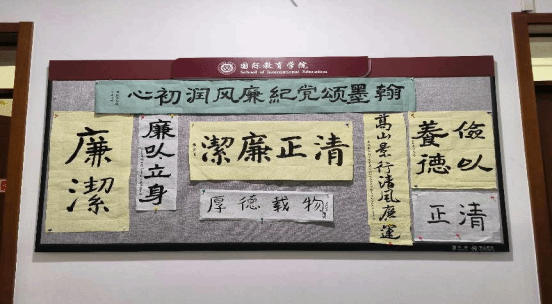 国际教育学院
School of International Education
翰墨颂党纪廉风润初心
儉以
養德
清正
高山景行清风
清正廉潔
厚德载物
廉以立身
廉潔